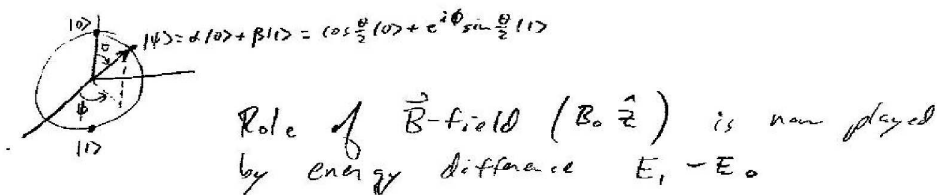 |0⟩
|ψ⟩ = α|0⟩ + β|1⟩ = cos θ/2 |0⟩ + e^{iφ} sin θ/2 |1⟩
θ
φ
|1⟩
Role of B⃗-field (B₀ ẑ) is now played
by energy difference E₁ - E₀